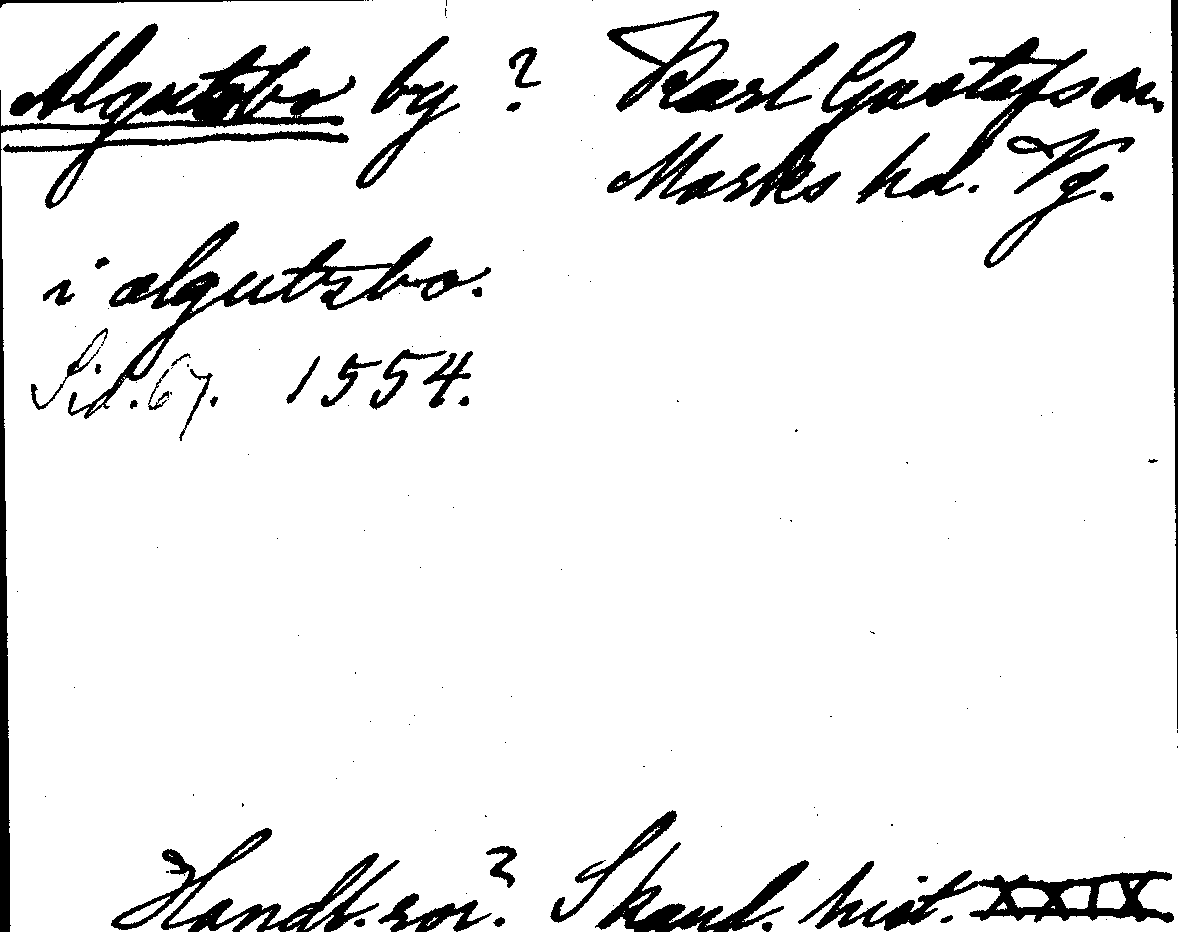 Algutsbo by? Karl Gustafson.
Marks hd. Vg.
i algutsbo.
Sid. 67. 1554.
Handl. rör? Skand. hist. XXIX.